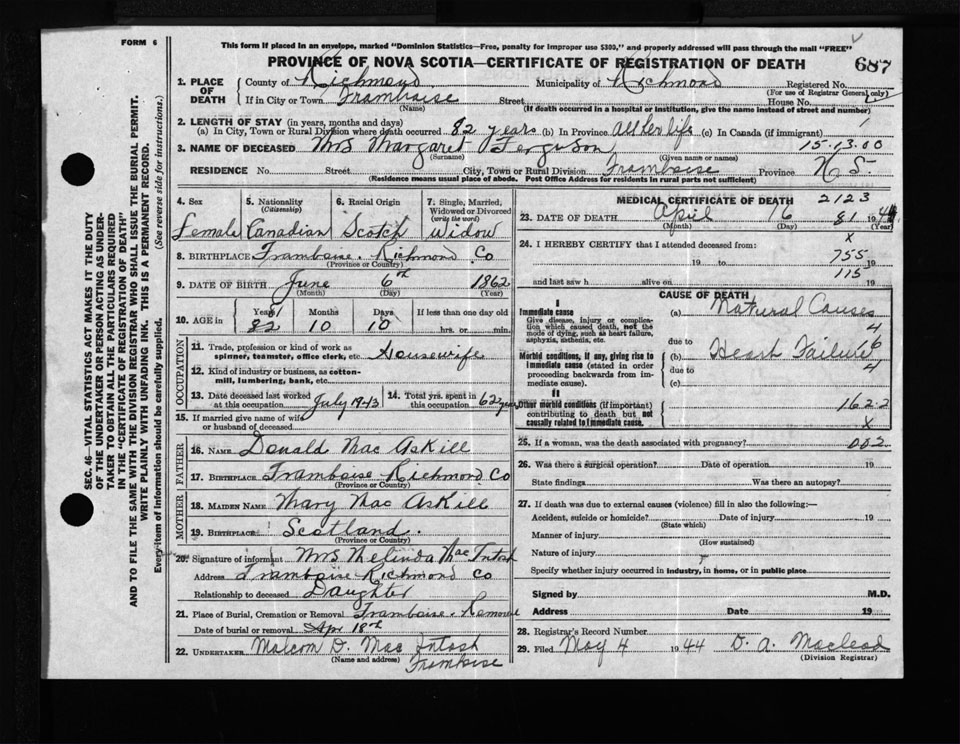 FORM 6
This form if placed in an envelope, marked "Dominion Statistics—Free, penalty for improper use $300," and properly addressed will pass through the mail "FREE"
PROVINCE OF NOVA SCOTIA—CERTIFICATE OF REGISTRATION OF DEATH
687
1. PLACE OF DEATH
County of Richmond Municipality of Richmond Registered No.
(For use of Registrar General only)
If in City or Town Framboise Street House No.
(Name) (If death occurred in a hospital or institution, give the name instead of street and number)
2. LENGTH OF STAY (in years, months and days)
(a) In City, Town or Rural Division where death occurred 82 years (b) In Province All her life (c) In Canada (if immigrant)
3. NAME OF DECEASED Mrs Margaret Ferguson 15-13.00
(Surname) (Given name or names)
RESIDENCE No. Street City, Town or Rural Division Framboise Province N.S.
(Residence means usual place of abode. Post Office Address for residents in rural parts not sufficient)
4. Sex 5. Nationality (Citizenship) 6. Racial Origin 7. Single, Married, Widowed or Divorced (write the word)
Female Canadian Scotch Widow
8. BIRTHPLACE Framboise. Richmond Co
(Province or Country)
9. DATE OF BIRTH June 6th 1862
(Month) (Day) (Year)
10. AGE in Years Months Days If less than one day old
82 10 10 hrs. or min.
OCCUPATION
11. Trade, profession or kind of work as spinner, teamster, office clerk, etc. Housewife
12. Kind of industry or business, as cotton-mill, lumbering, bank, etc.
13. Date deceased last worked at this occupation July 1943 14. Total yrs. spent in this occupation 62 years
15. If married give name of wife or husband of deceased
FATHER
16. NAME Donald Mac Askill
17. BIRTHPLACE Framboise Richmond Co
(Province or Country)
MOTHER
18. MAIDEN NAME Mary Mac Askill
19. BIRTHPLACE Scotland.
(Province or Country)
20. Signature of informant Mrs Melinda Mac Intosh
Address Framboise Richmond Co
Relationship to deceased Daughter
21. Place of Burial, Cremation or Removal Framboise. Removal
Date of burial or removal Apr 18th
22. UNDERTAKER Malcom D. Mac Intosh
(Name and address) Framboise
MEDICAL CERTIFICATE OF DEATH 2123
23. DATE OF DEATH April 16 81 1944
(Month) (Day) (Year)
24. I HEREBY CERTIFY that I attended deceased from: x
19 to 755 19
and last saw h alive on 115 19
CAUSE OF DEATH
I
Immediate cause (a) Natural Causes
Give disease, injury or complication which caused death, not the mode of dying, such as heart failure, asphyxia, asthenia, etc.
4
due to 16
Morbid conditions, if any, giving rise to immediate cause (stated in order proceeding backwards from immediate cause).
(b) Heart Failure
due to 4
(c)
II
Other morbid conditions (if important) contributing to death but not causally related to immediate cause.
162-2
x
25. If a woman, was the death associated with pregnancy? 002
26. Was there a surgical operation? Date of operation 19
State findings Was there an autopsy?
27. If death was due to external causes (violence) fill in also the following:—
Accident, suicide or homicide? Date of injury 19
(State which)
Manner of injury
(How sustained)
Nature of injury
Specify whether injury occurred in industry, in home, or in public place
Signed by M.D.
Address Date 19
28. Registrar's Record Number
29. Filed May 4 1944 D. A. Macleod
(Division Registrar)
SEC. 46—VITAL STATISTICS ACT MAKES IT THE DUTY
OF THE UNDERTAKER OR PERSON ACTING AS UNDERTAKER
TO OBTAIN ALL THE PARTICULARS REQUIRED
IN THE "CERTIFICATE OF REGISTRATION OF DEATH"
AND TO FILE THE SAME WITH THE DIVISION REGISTRAR WHO SHALL ISSUE THE BURIAL PERMIT.
WRITE PLAINLY WITH UNFADING INK. THIS IS A PERMANENT RECORD.
Every item of information should be carefully supplied. (See reverse side for instructions.)